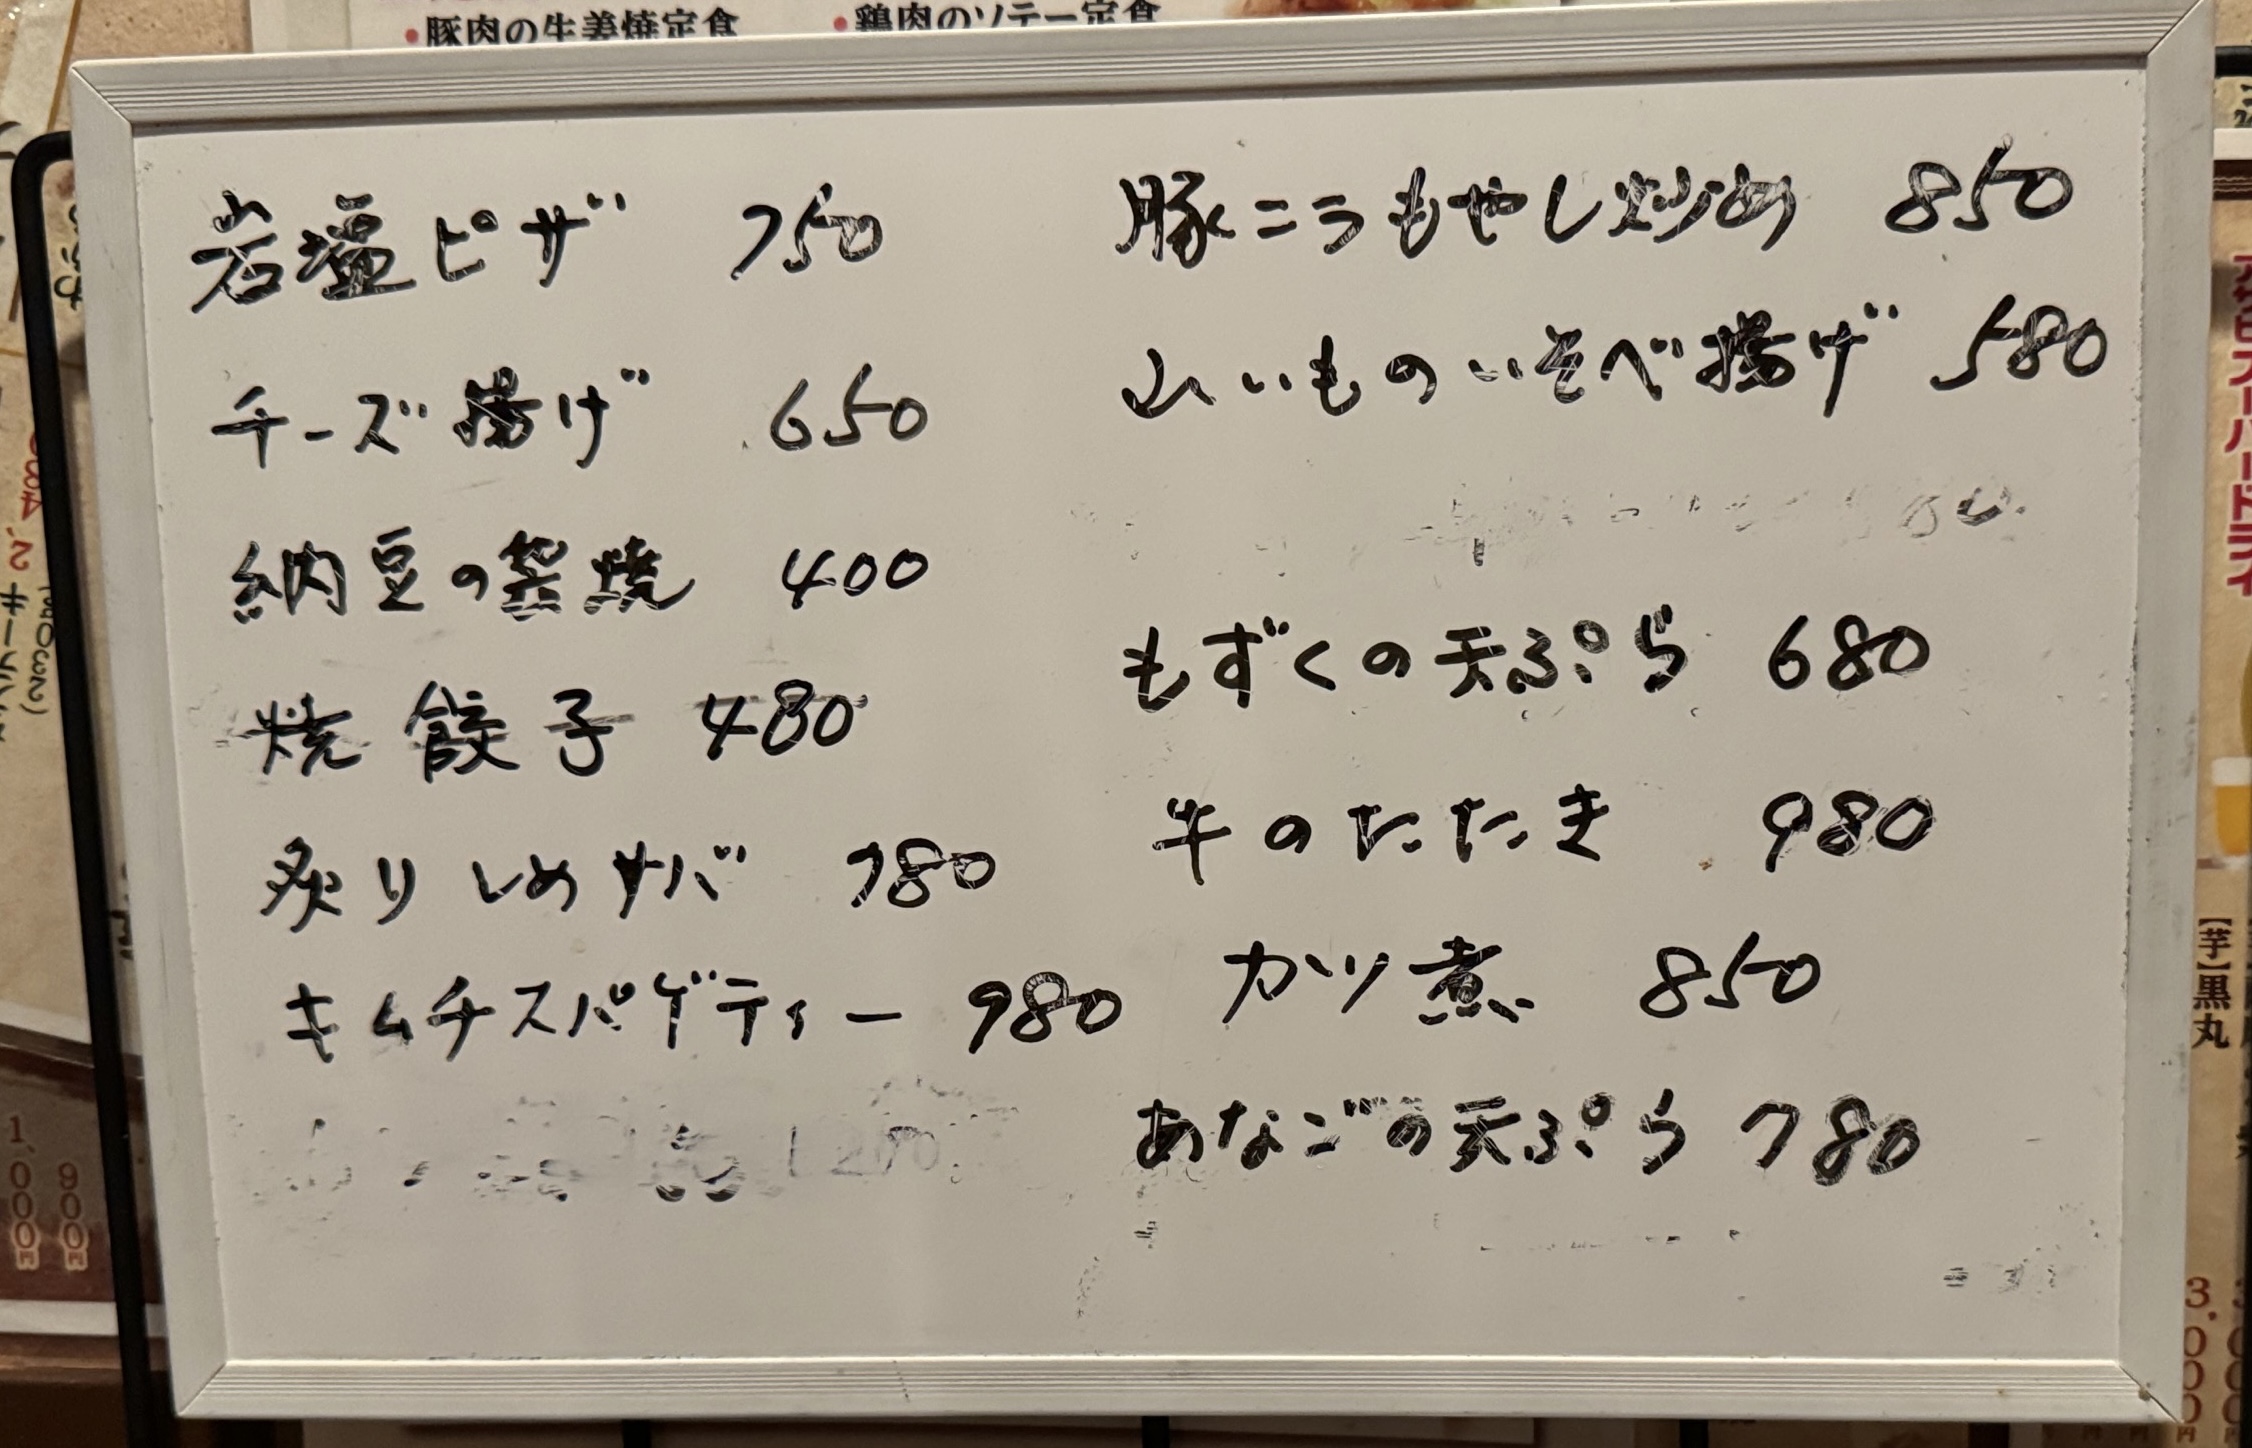 ・豚肉の生姜焼定食
・鶏肉のソテー定食
岩塩ピザ 750
チーズ揚げ 650
納豆の窯焼 400
焼餃子 480
炙りしめサバ 780
キムチスパゲティー 980
豚ニラもやし炒め 850
山いものいそべ揚げ 580
もずくの天ぷら 680
牛のたたき 980
カツ煮 850
あなごの天ぷら 780
【芋】黒丸
1,000円
900円